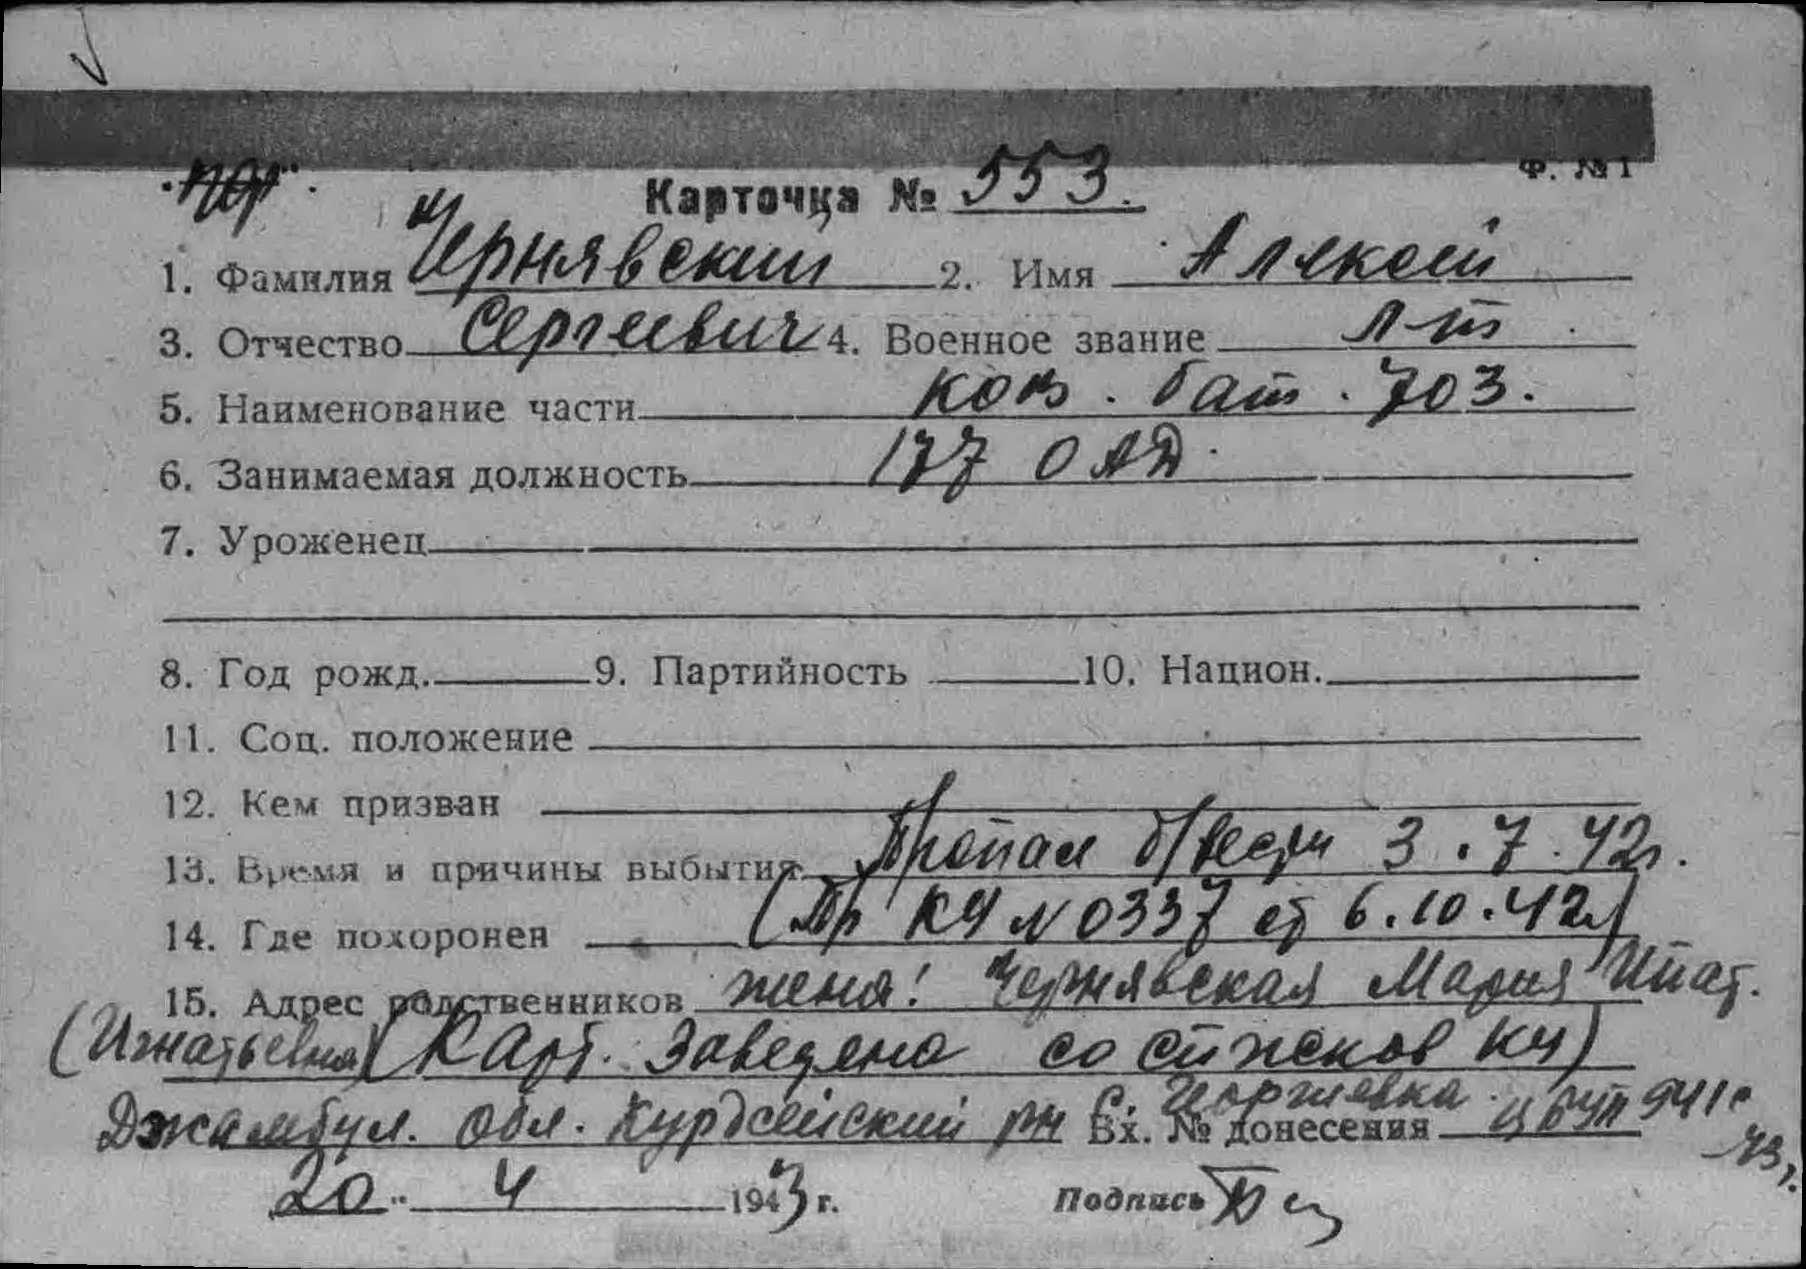 Ф. №1
Карточка № 553.
1. Фамилия Чернявский 2. Имя Алексей
3. Отчество Сергеевич 4. Военное звание л-т
5. Наименование части ком. бат. 703.
6. Занимаемая должность 177 ОАД.
7. Уроженец
8. Год рожд. 9. Партийность 10. Национ.
11. Соц. положение
12. Кем призван
13. Время и причины выбытия Пропал б/вести 3.7.42г.
14. Где похоронен (Пр КЧ N 0337 от 6.10.42г)
15. Адрес родственников жена: Чернявская Мария Ипат.
(Игнатьевна) (Карт. заведена со списков КЧ)
Джамбул. обл. Курдсейский рн с. Георгиевка
Вх. № донесения 9411с
43г.
20 " 4 1943 г. Подпись